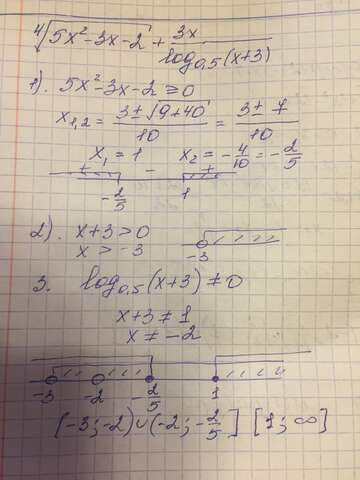 ⁴√5x²-3x-2 + 3x/log₀,₅(x+3)
1). 5x²-3x-2 ≥ 0
x₁,₂ = (3±√9+40)/10 = (3±7)/10
x₁ = 1 x₂ = -4/10 = -2/5
+ - +
-2/5 1
2). x+3>0
x > -3
-3
3. log₀,₅(x+3) ≠ 0
x+3 ≠ 1
x ≠ -2
-3 -2 -2/5 1
[-3;-2)∪(-2;-2/5] [1;∞]